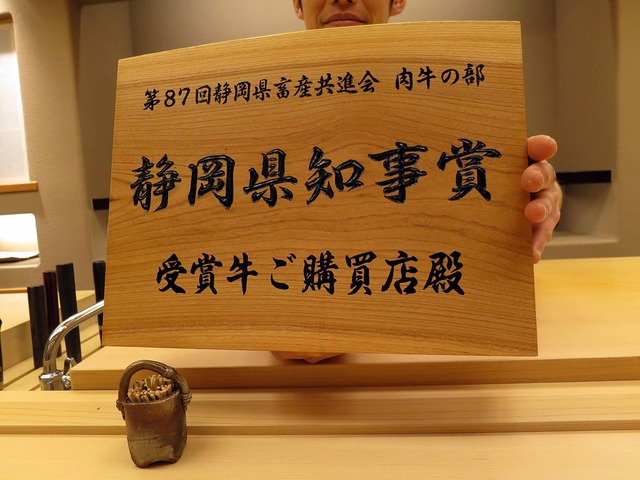 第87回静岡県畜産共進会 肉牛の部
静岡県知事賞
受賞牛ご購買店殿